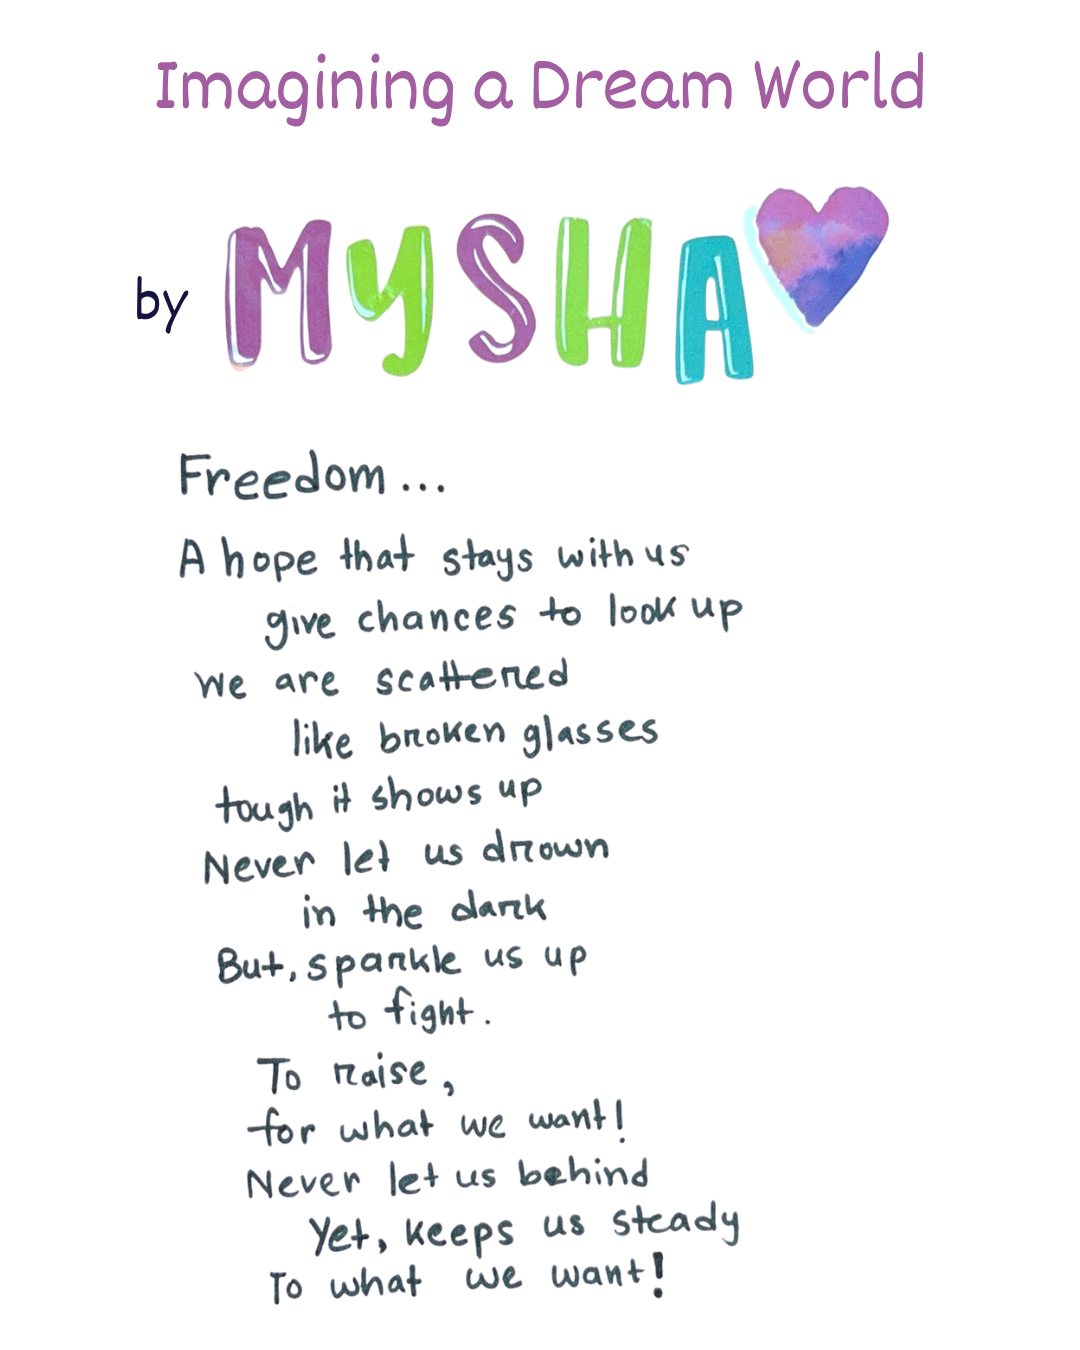 Imagining a Dream World
by MYSHA
Freedom...
A hope that stays with us
give chances to look up
We are scattered
like broken glasses
tough it shows up
Never let us drown
in the dark
But, sparkle us up
to fight.
To raise,
for what we want!
Never let us behind
Yet, keeps us steady
To what we want!